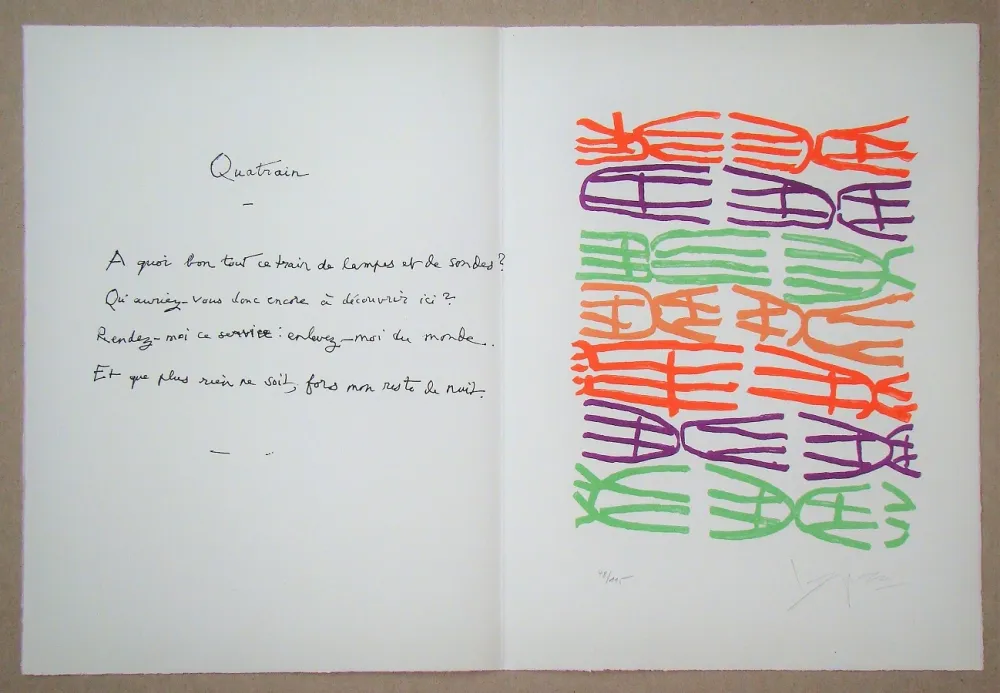 Quatrain
A quoi bon tout ce train de lampes et de sondes ?
Qu'auriez-vous donc encore à découvrir ici ?
Rendez-moi ce service : enlevez-moi du monde.
Et que plus rien ne soit, fors mon reste de nuit.